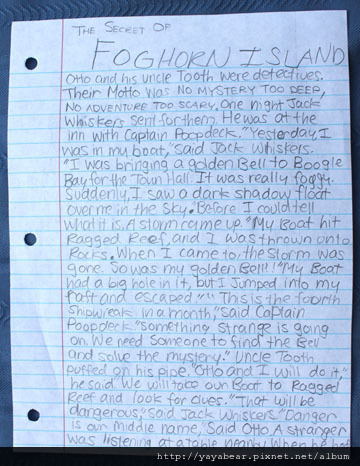 THE SECRET OF
FOGHORN ISLAND
Otto and his uncle Tooth were detectives.
Their Motto was NO MYSTERY TOO DEEP,
NO ADVENTURE TOO SCARY. One night Jack
Whiskers sent for them. He was at the
inn with Captain Poopdeck. "Yesterday, I
was in my boat," said Jack Whiskers.
"I was bringing a golden Bell to Boogle
Bay for the Town Hall. It was really foggy.
Suddenly, I saw a dark shadow float
over me in the Sky. Before I could tell
what it is. A storm came up. "My Boat hit
Ragged Reef, and I was thrown onto
Rocks. When I came to, the storm was
gone. So was my golden Bell! "My Boat
had a big hole in it, but I Jumped into my
raft and escaped." "This is the fourth
Shipwreck in a month," said Captain
Poopdeck "Something strange is going
on. We need someone to find the Bell
and solve the mystery." Uncle Tooth
puffed on his pipe. "Otto and I will do it,"
he said. We will take our Boat to Ragged
Reef and look for clues." "That will be
dangerous," said Jack Whiskers "Danger
is our middle name," Said Otto. A stranger
was listening at a table nearby. When he had
http://yayabear.pixnet.net/album